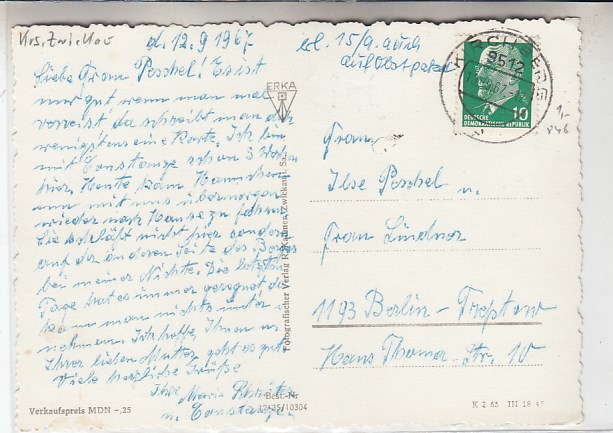 Krs. Zwickau
d. 12.9 1967
Liebe Frau Peschel! Es ist
nur gut wenn man mal
verreist da schreibt man doch
wenigstens eine Karte. Ich bin
mit Constanze schon 3 Wochen
hier. Heute kam
um mit uns übermorgen
wieder nach Hause zu fahren.
Sie schläft nicht hier sondern
auf der anderen Seite des Berges
bei meiner Nichte. Die letzten
Tage hat es immer geregnet da
kann man nichts unter-
nehmen. Ich hoffe, Ihnen u.
Ihrer lieben Mutter geht es gut.
Viele herzliche Grüße
Ihre Maria
u. Constanze
Verkaufspreis MDN -,25
ERKA
Fotografischer Verlag R. Zwickau
Best.-Nr
10304
15/9. auch
9512
10
DEUTSCHE
DEMOKRATISCHE REPUBLIK
Frau
Ilse Peschel u.
Frau Lindner
1193 Berlin-Treptow
Hans Thoma-Str. 10
K 2 65 III 18